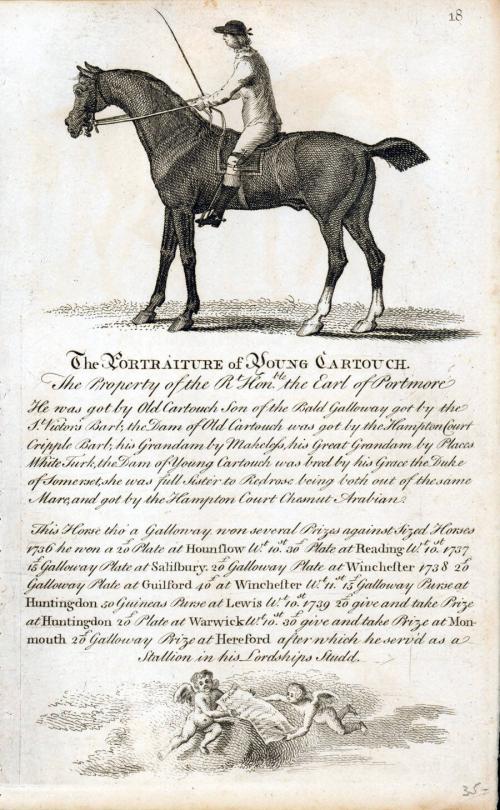 18
The PORTRAITURE of YOUNG CARTOUCH.
The Property of the R.t Hon.ble the Earl of Portmore
He was got by Old Cartouch Son of the Bald Galloway got by the
S.t Victors Barb; the Dam of Old Cartouch was got by the Hampton Court
Cripple Barb; his Grandam by Makeless, his Great Grandam by Places
White Turk, the Dam of Young Cartouch was bred by his Grace the Duke
of Somerset, she was full Sister to Redrose being both out of the same
Mare, and got by the Hampton Court Chesnut Arabian.
This Horse tho' a Galloway won several Prizes against Sized Horses
1736 he won a 20£ Plate at Hounslow W.t 10.st 30£ Plate at Reading W.t 10.st 1737
15£ Galloway Plate at Salisbury. 20£ Galloway Plate at Winchester 1738 20£
Galloway Plate at Guilford 40£ at Winchester W.t 11.st 15£ Galloway Purse at
Huntingdon 50 Guineas Purse at Lewis W.t 10.st 1739 20 give and take Prize
at Huntingdon 20£ Plate at Warwick W.t 10.st 30£ give and take Prize at Mon-
mouth 20£ Galloway Prize at Hereford after which he serv'd as a
Stallion in his Lordships Studd.
35-